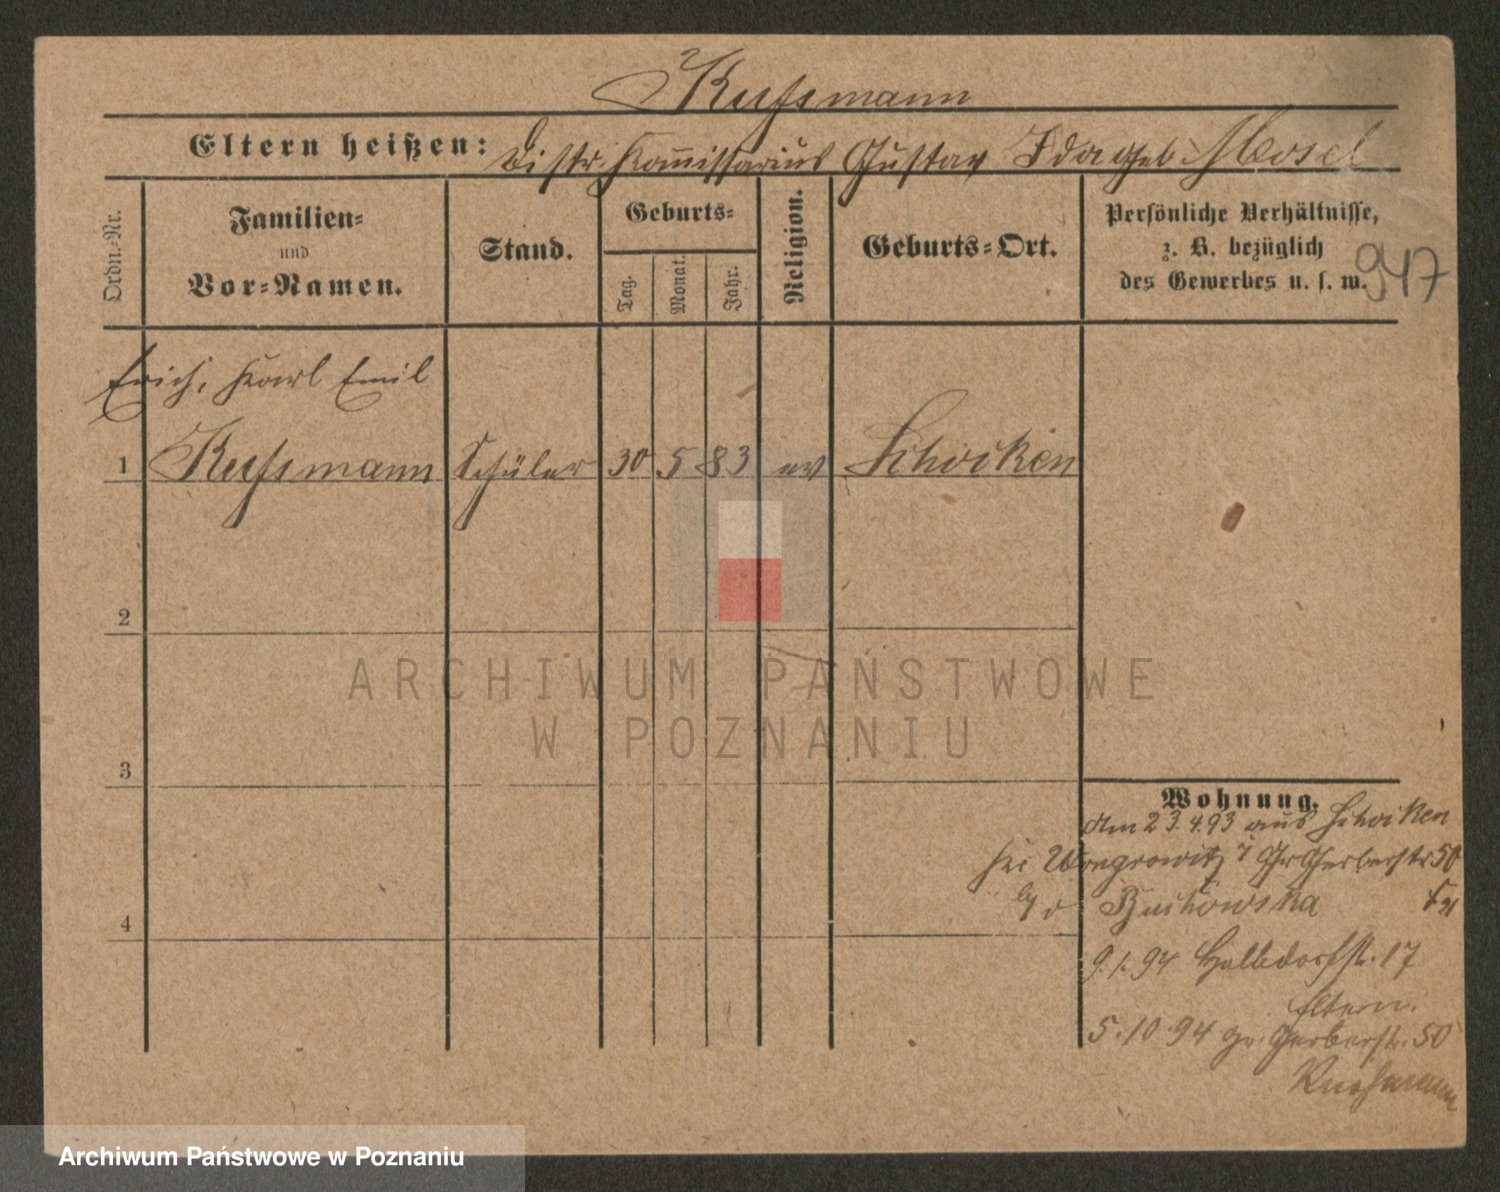 Kussmann
Eltern heißen: Distr. Kommissarius Gustav Ida geb. Mosel
Ordn.-Nr.
Familien-
und
Vor-Namen.
Stand.
Geburts-
Tag.
Monat.
Jahr.
Religion.
Geburts-Ort.
Persönliche Verhältnisse,
z. B. bezüglich
des Gewerbes u. s. w.
947
Erich, Karl Emil
1 Kussmann Schüler 30 5 83 ev Schocken
2
3
4
Wohnung.
Am 23.4.93 aus Schocken
Wongrowitz Gr Gerberstr 50
9.1.94 Halbdorfstr. 17
Eltern.
5.10.94 gr. Gerberstr. 50
ARCHIWUM PAŃSTWOWE
W POZNANIU
Archiwum Państwowe w Poznaniu